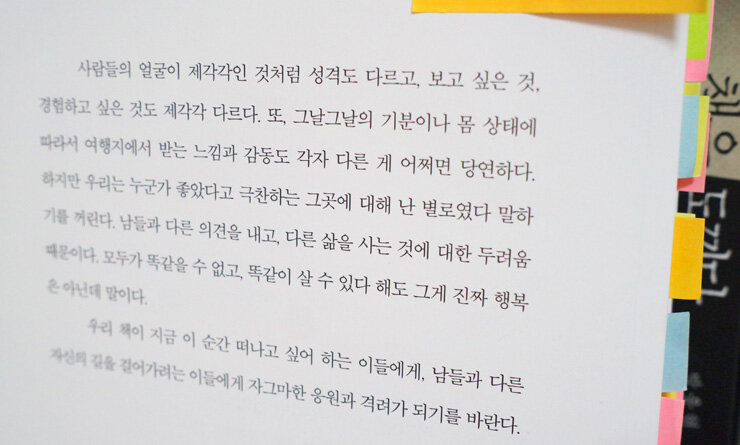 사람들의 얼굴이 제각각인 것처럼 성격도 다르고, 보고 싶은 것,
경험하고 싶은 것도 제각각 다르다. 또, 그날그날의 기분이나 몸 상태에
따라서 여행지에서 받는 느낌과 감동도 각자 다른 게 어쩌면 당연하다.
하지만 우리는 누군가 좋았다고 극찬하는 그곳에 대해 난 별로였다 말하
기를 꺼린다. 남들과 다른 의견을 내고, 다른 삶을 사는 것에 대한 두려움
때문이다. 모두가 똑같을 수 없고, 똑같이 살 수 있다 해도 그게 진짜 행복
은 아닌데 말이다.
우리 책이 지금 이 순간 떠나고 싶어 하는 이들에게, 남들과 다른
자신의 길을 걸어가려는 이들에게 자그마한 응원과 격려가 되기를 바란다.